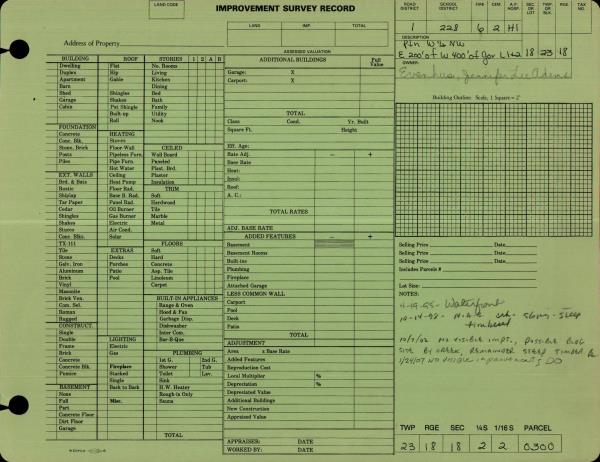 LAND CODE
IMPROVEMENT SURVEY RECORD
LAND IMP.
Address of Property
ASSESSED VALUATION
ROAD DISTRICT SCHOOL DISTRICT FIRE CEM. HOSP. SEC OR LOT TWP. OR BLK. RGE. TAX NO.
1 228 6 2 H1
DESCRIPTION
Ptn W½ NW
E 200' of W 400' of Gov L 1+2 18 23 18
OWNER:
Building Outline: Scale, 1 Square = 2'
BUILDING ROOF STORIES 1 2 A B
Dwelling Flat No. Rooms
Duplex Hip Living
Apartment Gable Kitchen
Barn Dining
Shed Shingles Bed
Garage Shakes Bath
Cabin Pat Shingle Family
Built-up Utility
Roll Nook
FOUNDATION
Concrete HEATING
Conc. Blk. Stoves CEILED
Stone, Brick Floor-Wall Wall Board
Posts Pipeless Furn. Paneled
Piles Pipe Furn. Plast. Brd.
Hot Water Plaster
EXT. WALLS Ceiling Insulation
Brd. & Bats Heat Pump TRIM
Rustic Floor Rad. Soft
Shiplap Base B. Rad. Hardwood
Tar Paper Panel Rad. Tile
Cedar Oil Burner Marble
Shingles Gas Burner Metal
Shakes Electric
Stucco Air Cond.
Conc. Blks. Solar FLOORS
TX-111 Soft
Tile EXTRAS Hard
Stone Decks Concrete
Galv. Iron Porches Asp. Tile
Aluminum Patio Linoleum
Brick Pool Carpet
Vinyl
Masonite BUILT-IN APPLIANCES
Brick Ven. Range & Oven
Com. Sel. Hood & Fan
Roman Garbage Disp.
Rugged Dishwasher
CONSTRUCT. Inter Com.
Single Bar-B-Que
Double LIGHTING PLUMBING
Frame Electric 1st G. 2nd G.
Brick Gas Shower Tub
Concrete Toilet Lav.
Concrete Blk. Fireplace Sink
Pumice Stacked H.W. Heater
Single Rough-in Only
BASEMENT Back to Back Sauna
None
Full Misc.
Part
Concrete Floor
Dirt Floor
Garage
TOTAL
ADDITIONAL BUILDINGS Full Value
Garage: X
Carport: X
TOTAL
Class Cond. Yr. Built
Square Ft. Height
Eff. Age:
Rate Adj. − +
Base Rate
Heat:
Insul:
Roof:
A. C.:
TOTAL RATES
ADJ. BASE RATE
ADDED FEATURES − +
Basement
Basement Rooms
Built-ins
Plumbing
Fireplace
Attached Garage
LESS COMMON WALL
Carport
Pool
Deck
Patio
TOTAL
ADJUSTMENT
Area x Base Rate
Added Features
Reproduction Cost
Local Multiplier %
Depreciation %
Depreciated Value
Additional Buildings
New Construction
Appraised Value
APPRAISER: DATE
WORKED BY: DATE
Selling Price Date
Selling Price Date
Selling Price Date
Includes Parcels #
Lot Size:
NOTES:
Waterfront
timbered
10/7/02 NO VISIBLE IMPS., POSSIBLE BLDG
SITE BY CREEK, REMAINDER STEEP TIMBER
1/24/07 NO VISIBLE improvements DO
TWP RGE SEC ¼S 1/16 S PARCEL
23 18 18 2 2 0300